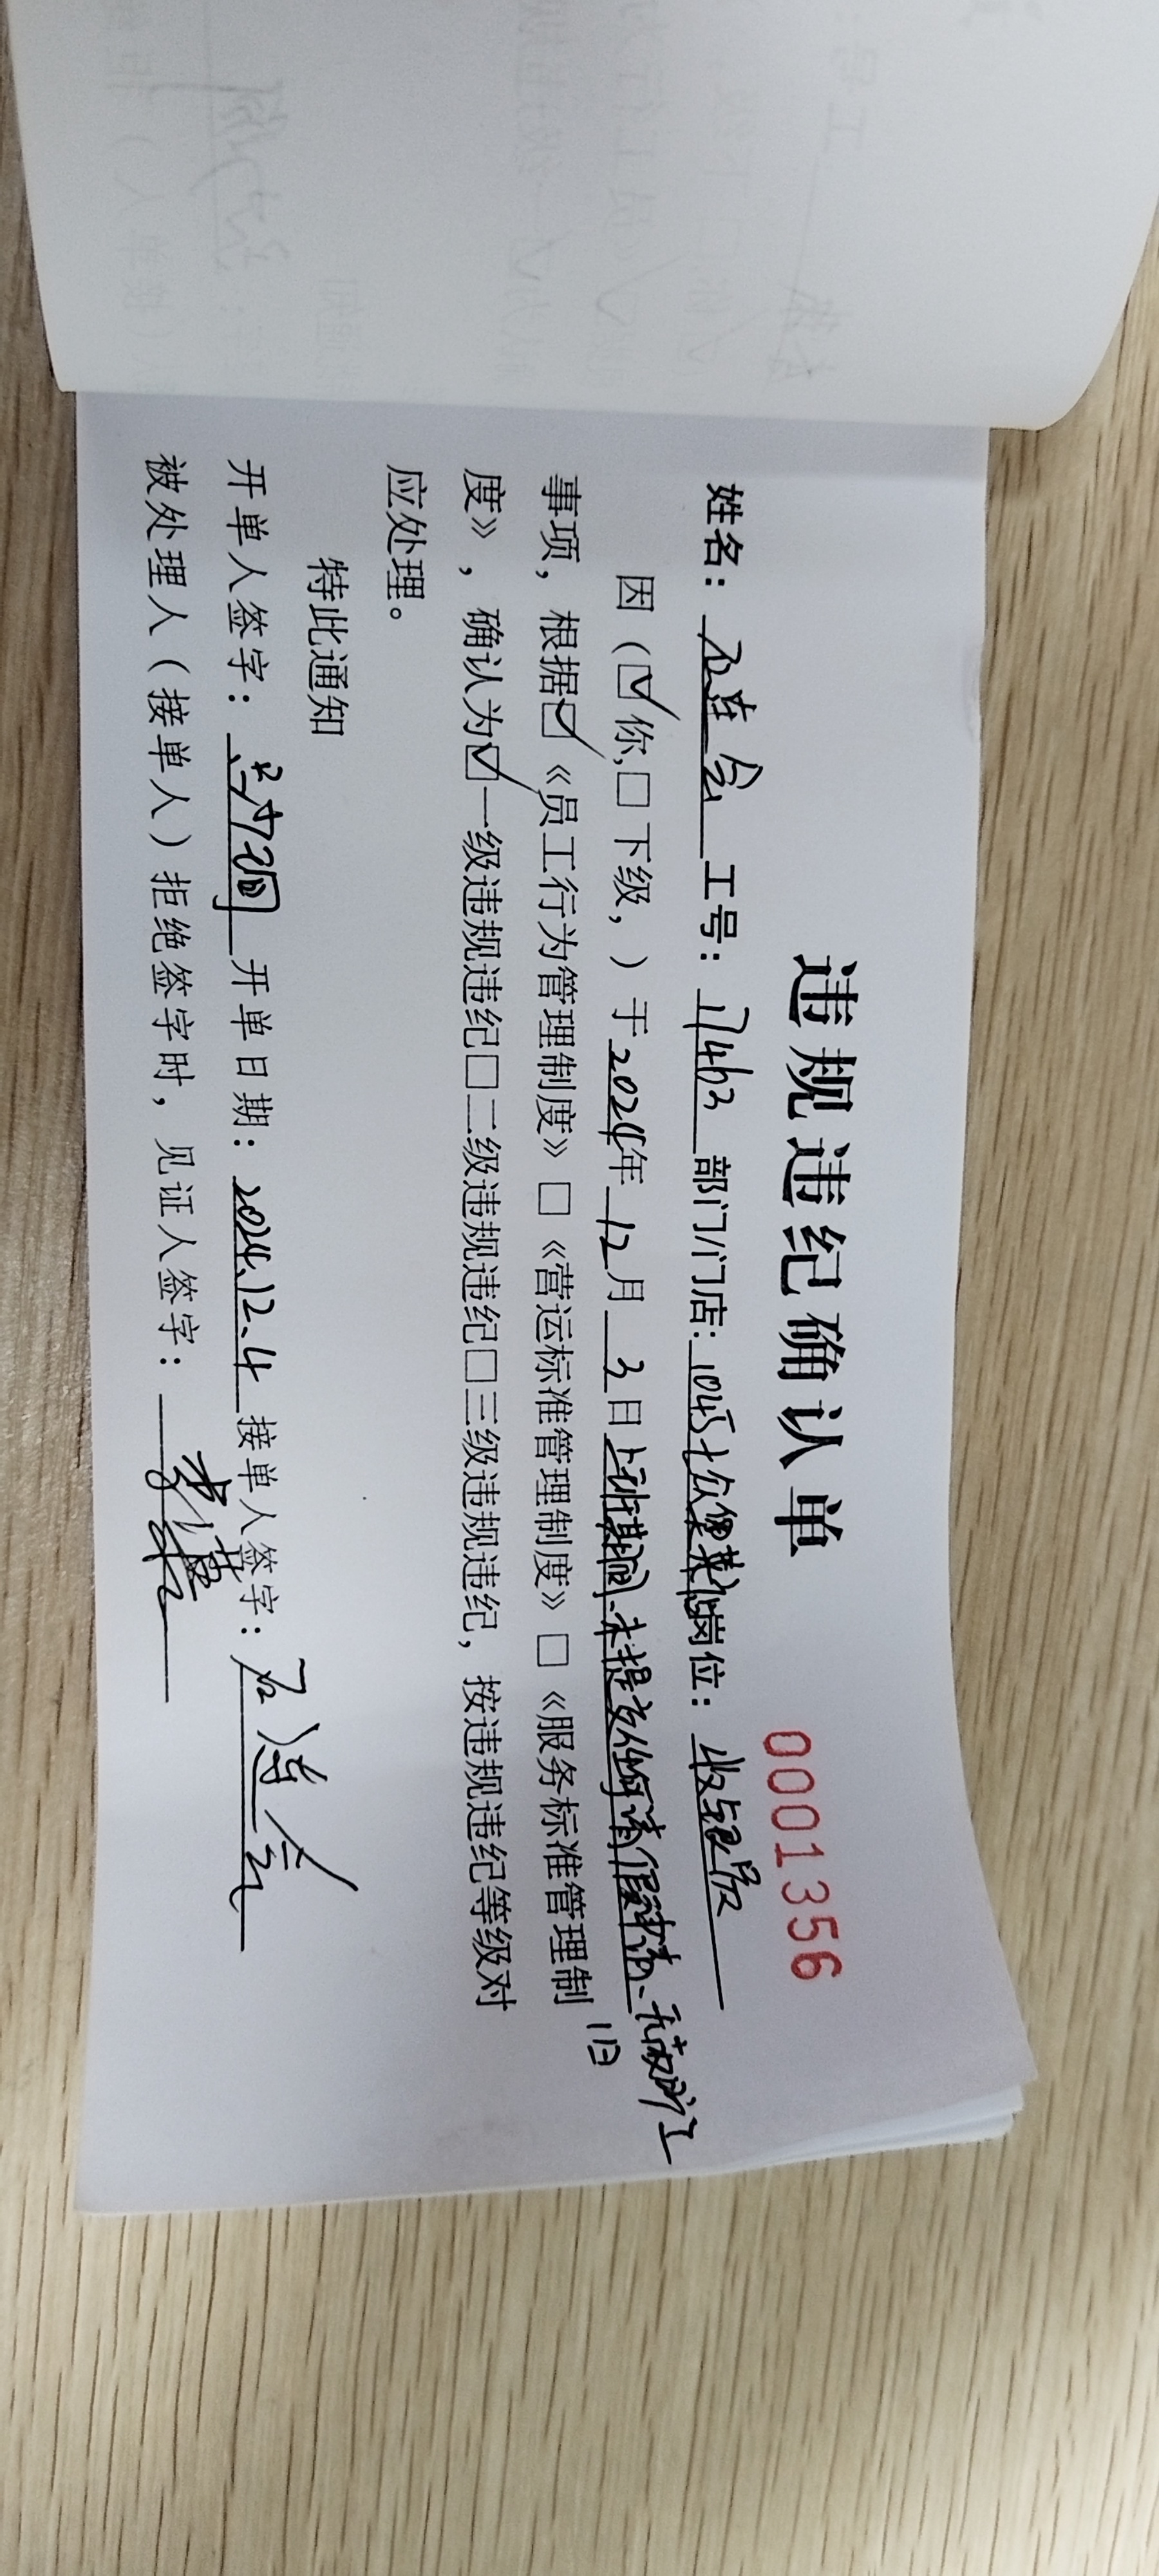 违规违纪确认单
0001356
姓名：石连会 工号：17463 部门/门店：1045 岗位：收银员
因（☑你,□下级，）于2024年12月3日上班期间、未提交任何请假申请、无故旷工
1日
事项，根据☑《员工行为管理制度》□《营运标准管理制度》□《服务标准管理制
度》，确认为☑一级违规违纪□二级违规违纪□三级违规违纪，按违规违纪等级对
应处理。
特此通知
开单人签字： 开单日期：2024.12.4 接单人签字：石连会
被处理人（接单人）拒绝签字时，见证人签字：